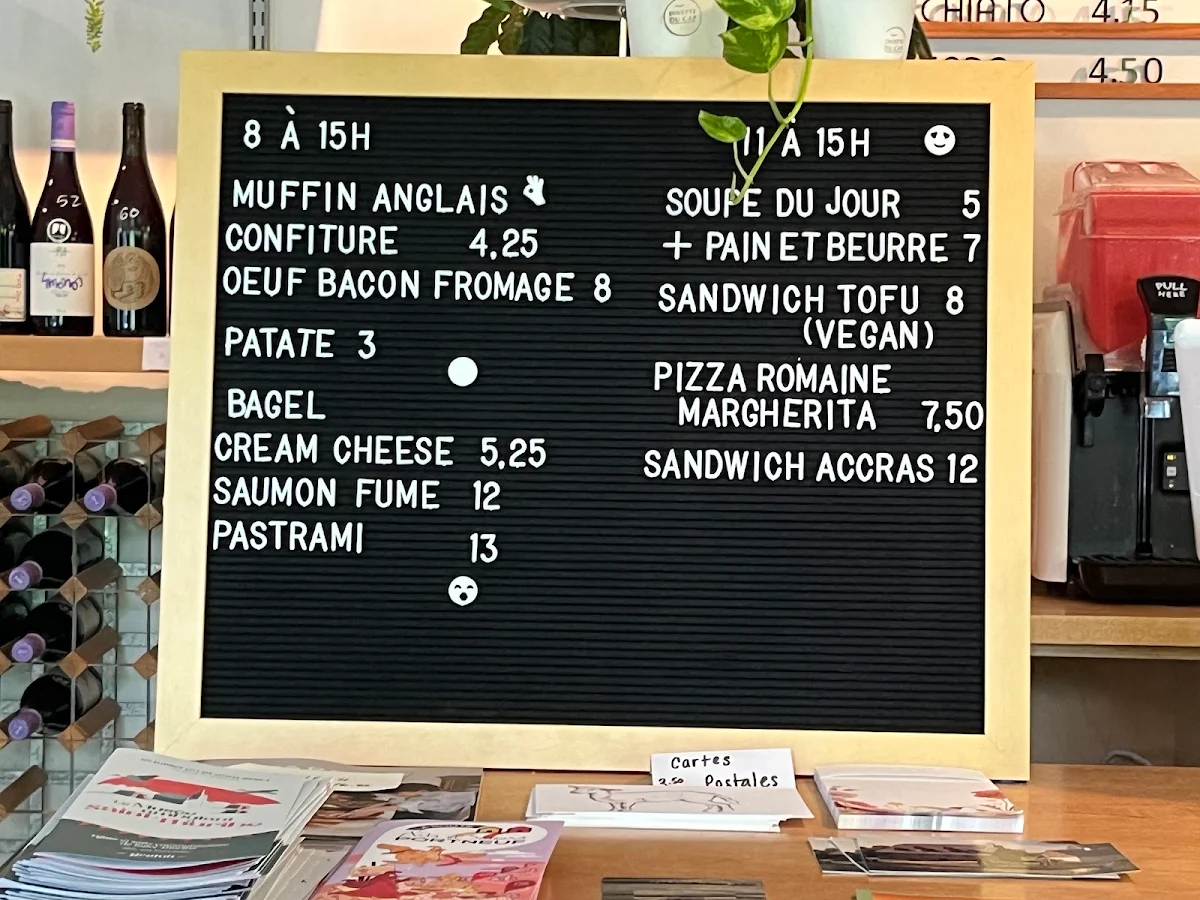 8 À 15H
MUFFIN ANGLAIS
CONFITURE 4,25
OEUF BACON FROMAGE 8
PATATE 3
BAGEL
CREAM CHEESE 5,25
SAUMON FUME 12
PASTRAMI 13
11 À 15H
SOUPE DU JOUR 5
+ PAIN ET BEURRE 7
SANDWICH TOFU 8
(VEGAN)
PIZZA ROMAINE
MARGHERITA 7,50
SANDWICH ACCRAS 12
4.15
4.50
52
60
PULL
HERE
Cartes
Postales
PORTNEUF